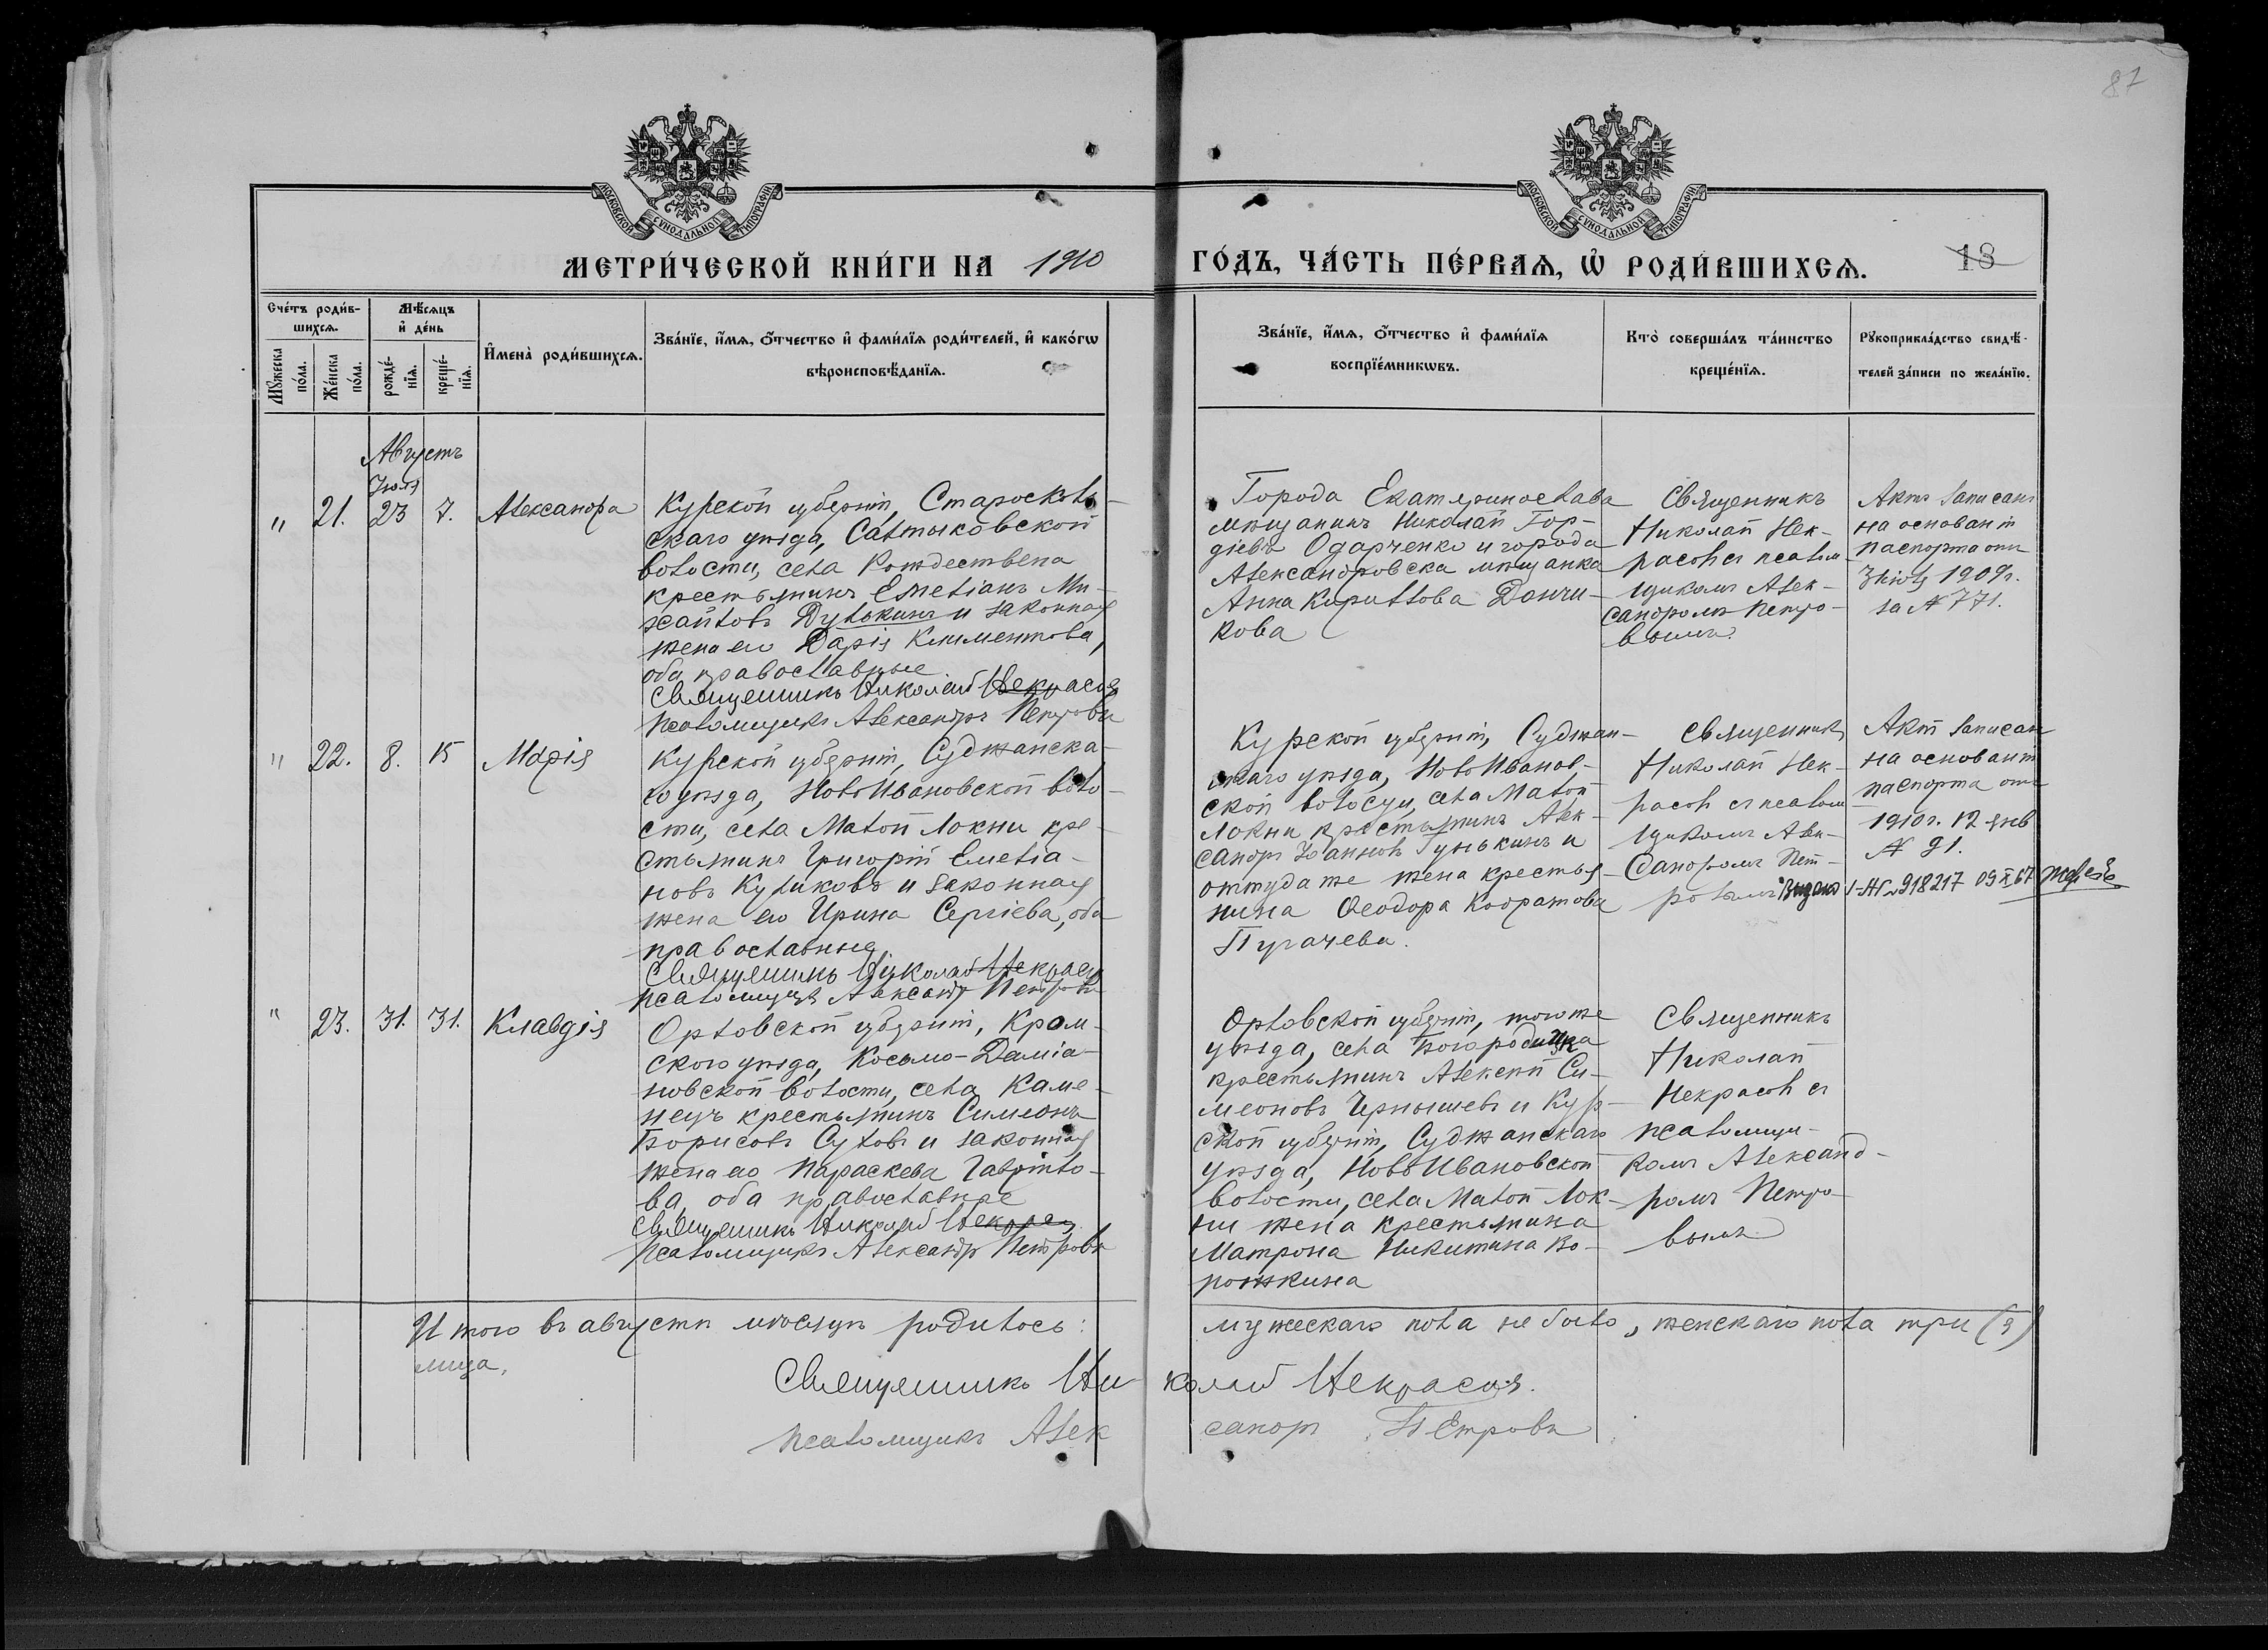 87
МОСКОВСКОЙ СѴНОДАЛЬНОЙ ТИПОГРАФІИ
МОСКОВСКОЙ СѴНОДАЛЬНОЙ ТИПОГРАФІИ
МЕТРИ́ЧЕСКОЙ КНИ́ГИ НА 1910 ГО́ДЪ, ЧА́СТЬ ПЕ́РВАѦ, Ѡ҆ РОДИ́ВШИХСѦ.
13
Сче́тъ роди́в-
шихсѧ.
Мѣ́сѧцъ
и҆ де́нь
Мꙋ́жеска
по́ла.
Же́нска
по́ла.
рожде́-
нїѧ.
креще́-
нїѧ.
И҆мена̀ роди́вшихсѧ.
Зва́нїе, и҆́мѧ, ѻ҆́тчество и҆ фами́лїѧ роди́телей, и҆ како́гѡ
вѣроисповѣ́данїѧ.
Зва́нїе, и҆́мѧ, ѻ҆́тчество и҆ фами́лїѧ
воспрїе́мникѡвъ.
Кто̀ соверша́лъ та́инство
креще́нїѧ.
Рꙋкоприкла́дство свидѣ́-
телей за́писи по жела́нїю.
Августъ
Іюля
" 21. 23 7. Александра
Курской губерніи, Староскол-
скаго уѣзда, Салтыковской
волости, села Рождествена
крестьянинъ Емеліанъ Ми-
хайловъ Дутокинъ и законная
жена его Дарія Климентова,
оба православные
Священникъ Николай Некрасовъ
Псаломщикъ Александръ Петровъ
Города Екатеринослава
мѣщанинъ Николай Гор-
діевъ Одарченко и города
Александровска мѣщанка
Анна Кириллова Дончи-
кова
Священникъ
Николай Нек-
расовъ съ псалом-
щикомъ Алек-
сандромъ Петро-
вымъ.
Актъ записанъ
на основаніи
паспорта отъ
3 іюля 1909 г.
за № 771.
" 22. 8. 15 Марія
Курской губерніи, Суджанска-
го уѣзда, Ново Ивановской воло-
сти, села Малой Локни кре-
стьянинъ Григорій Емеліа-
новъ Куликовъ и законная
жена его Ирина Сергіева, оба
православные
Священникъ Николай Некрасовъ
Псаломщикъ Александръ Петровъ
Курской губерніи, Суджан-
скаго уѣзда, Ново Иванов-
ской волости, села Малой
Локни крестьянинъ Алек-
сандръ Іоанновъ Гунькинъ и
оттуда же жена крестья-
нина Ѳеодора Кондратова
Пугачева.
Священникъ
Николай Нек-
расовъ съ псалом-
щикомъ Алек-
сандромъ Пет-
ровымъ
Актъ записанъ
на основаніи
паспорта отъ
1910 г. 12 янв
№ 21.
918217 09 X 67
" 23. 31. 31. Клавдія
Орловской губерніи, Кром-
ского уѣзда, Космо-Даміа-
новской волости, села Каме-
нецъ крестьянинъ Симеонъ
Борисовъ Суховъ и законная
жена его Параскева Гавріило-
ва, оба православные
Священникъ Николай Некрасовъ
Псаломщикъ Александръ Петровъ
Орловской губерніи, того же
уѣзда, села Богородицка
крестьянинъ Алексѣй Си-
меоновъ Чернышевъ и Кур-
ской губерніи, Суджанскаго
уѣзда, Ново Ивановской
волости, села Малой Лок-
ни жена крестьянина
Матрона Никитина Во-
рожкина
Священникъ
Николай
Некрасовъ съ
псаломщи-
комъ Александ-
ромъ Петро-
вымъ
Итого въ августѣ мѣсяцѣ родилось: мужескаго пола не было, женскаго пола три (3)
лица.
Священникъ Николай Некрасовъ.
Псаломщикъ Александръ Петровъ